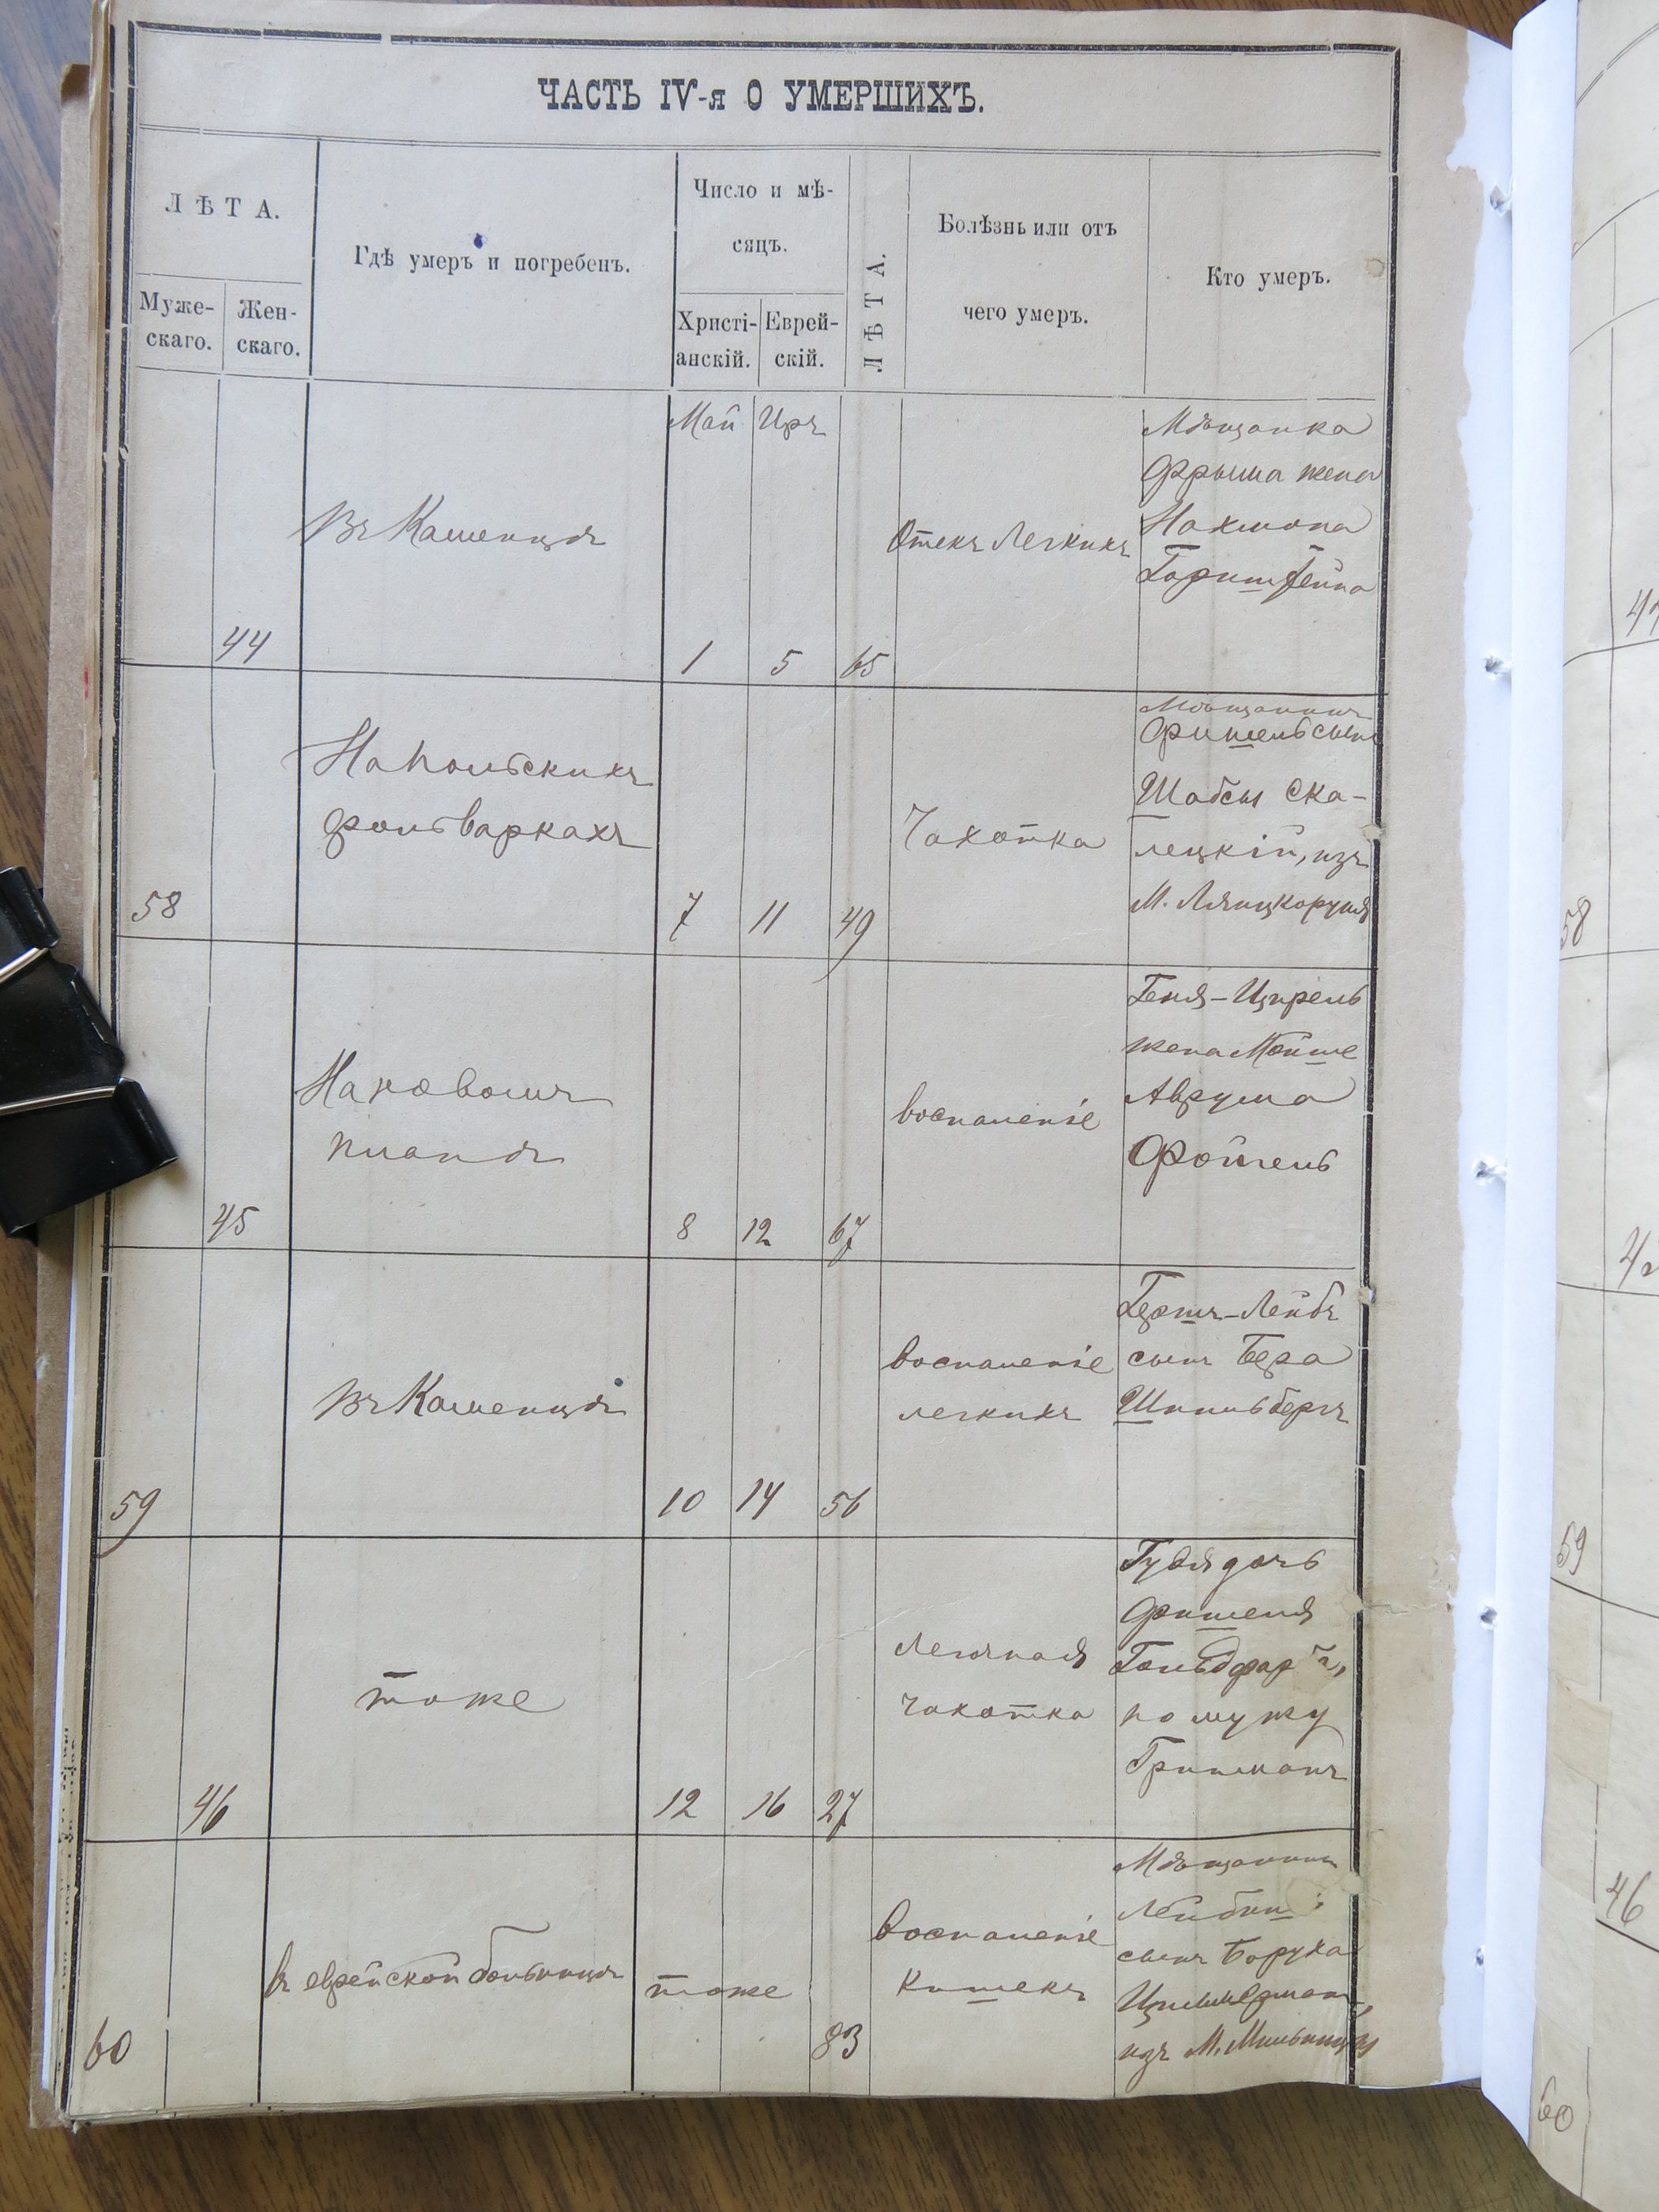 ЧАСТЬ IV-я О УМЕРШИХЪ.
ЛѢТА.
Муже-
скаго.
Жен-
скаго.
Гдѣ умеръ и погребенъ.
Число и мѣ-
сяцъ.
Христі-
анскій.
Еврей-
скій.
ЛѢТА.
Болѣзнь или отъ
чего умеръ.
Кто умеръ.
Май Иръ
44
Въ Каменцѣ
1 5 65
Отекъ Легкихъ
Мѣщанка
Фрыма жена
Нахмана
Горнштейна
58
На польскихъ
фольваркахъ
7 11 49
Чахотка
Мѣщанинъ
Фишель сынъ
Шабсы Ска-
лецкій, изъ
М. Ляницкоруня
45
На новомъ
планѣ
8 12 67
воспаленіе
Геня-Цирель
жена Мойше
Аврума
Фойгель
59
Въ Каменцѣ
10 14 56
воспаленіе
легкихъ
Гершъ-Лейбъ
сынъ Бера
Шпильбергъ
46
тоже
12 16 27
Легочная
чахотка
дочь
Фишеля
по мужу
60
въ еврейской больницѣ
тоже
83
воспаленіе
Кишекъ
Мѣщанинъ
сынъ Боруха
Цимерманъ,
изъ М.
58
59
46
60